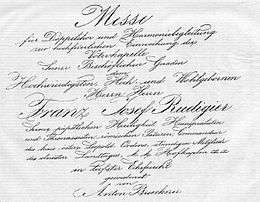 Messe
für Doppelchor und Harmoniebegleitung
zur hochfeierlichen Einweihung der
Votivkapelle
Seiner Bischöflichen Gnaden
dem
Hochwürdigsten Hoch- und Wohlgebornen
Herrn Herrn
Franz Josef Rudigier
Seiner päpstlichen Heiligkeit Hausprälaten
und Thronassistenten, römischen Grafen, Commandeur
des kais. österr. Leopold-Ordens, ständigen Mitglied
des Landtages, k. k.
in tiefster Ehrfurcht
gewidmet
von
Anton Bruckner